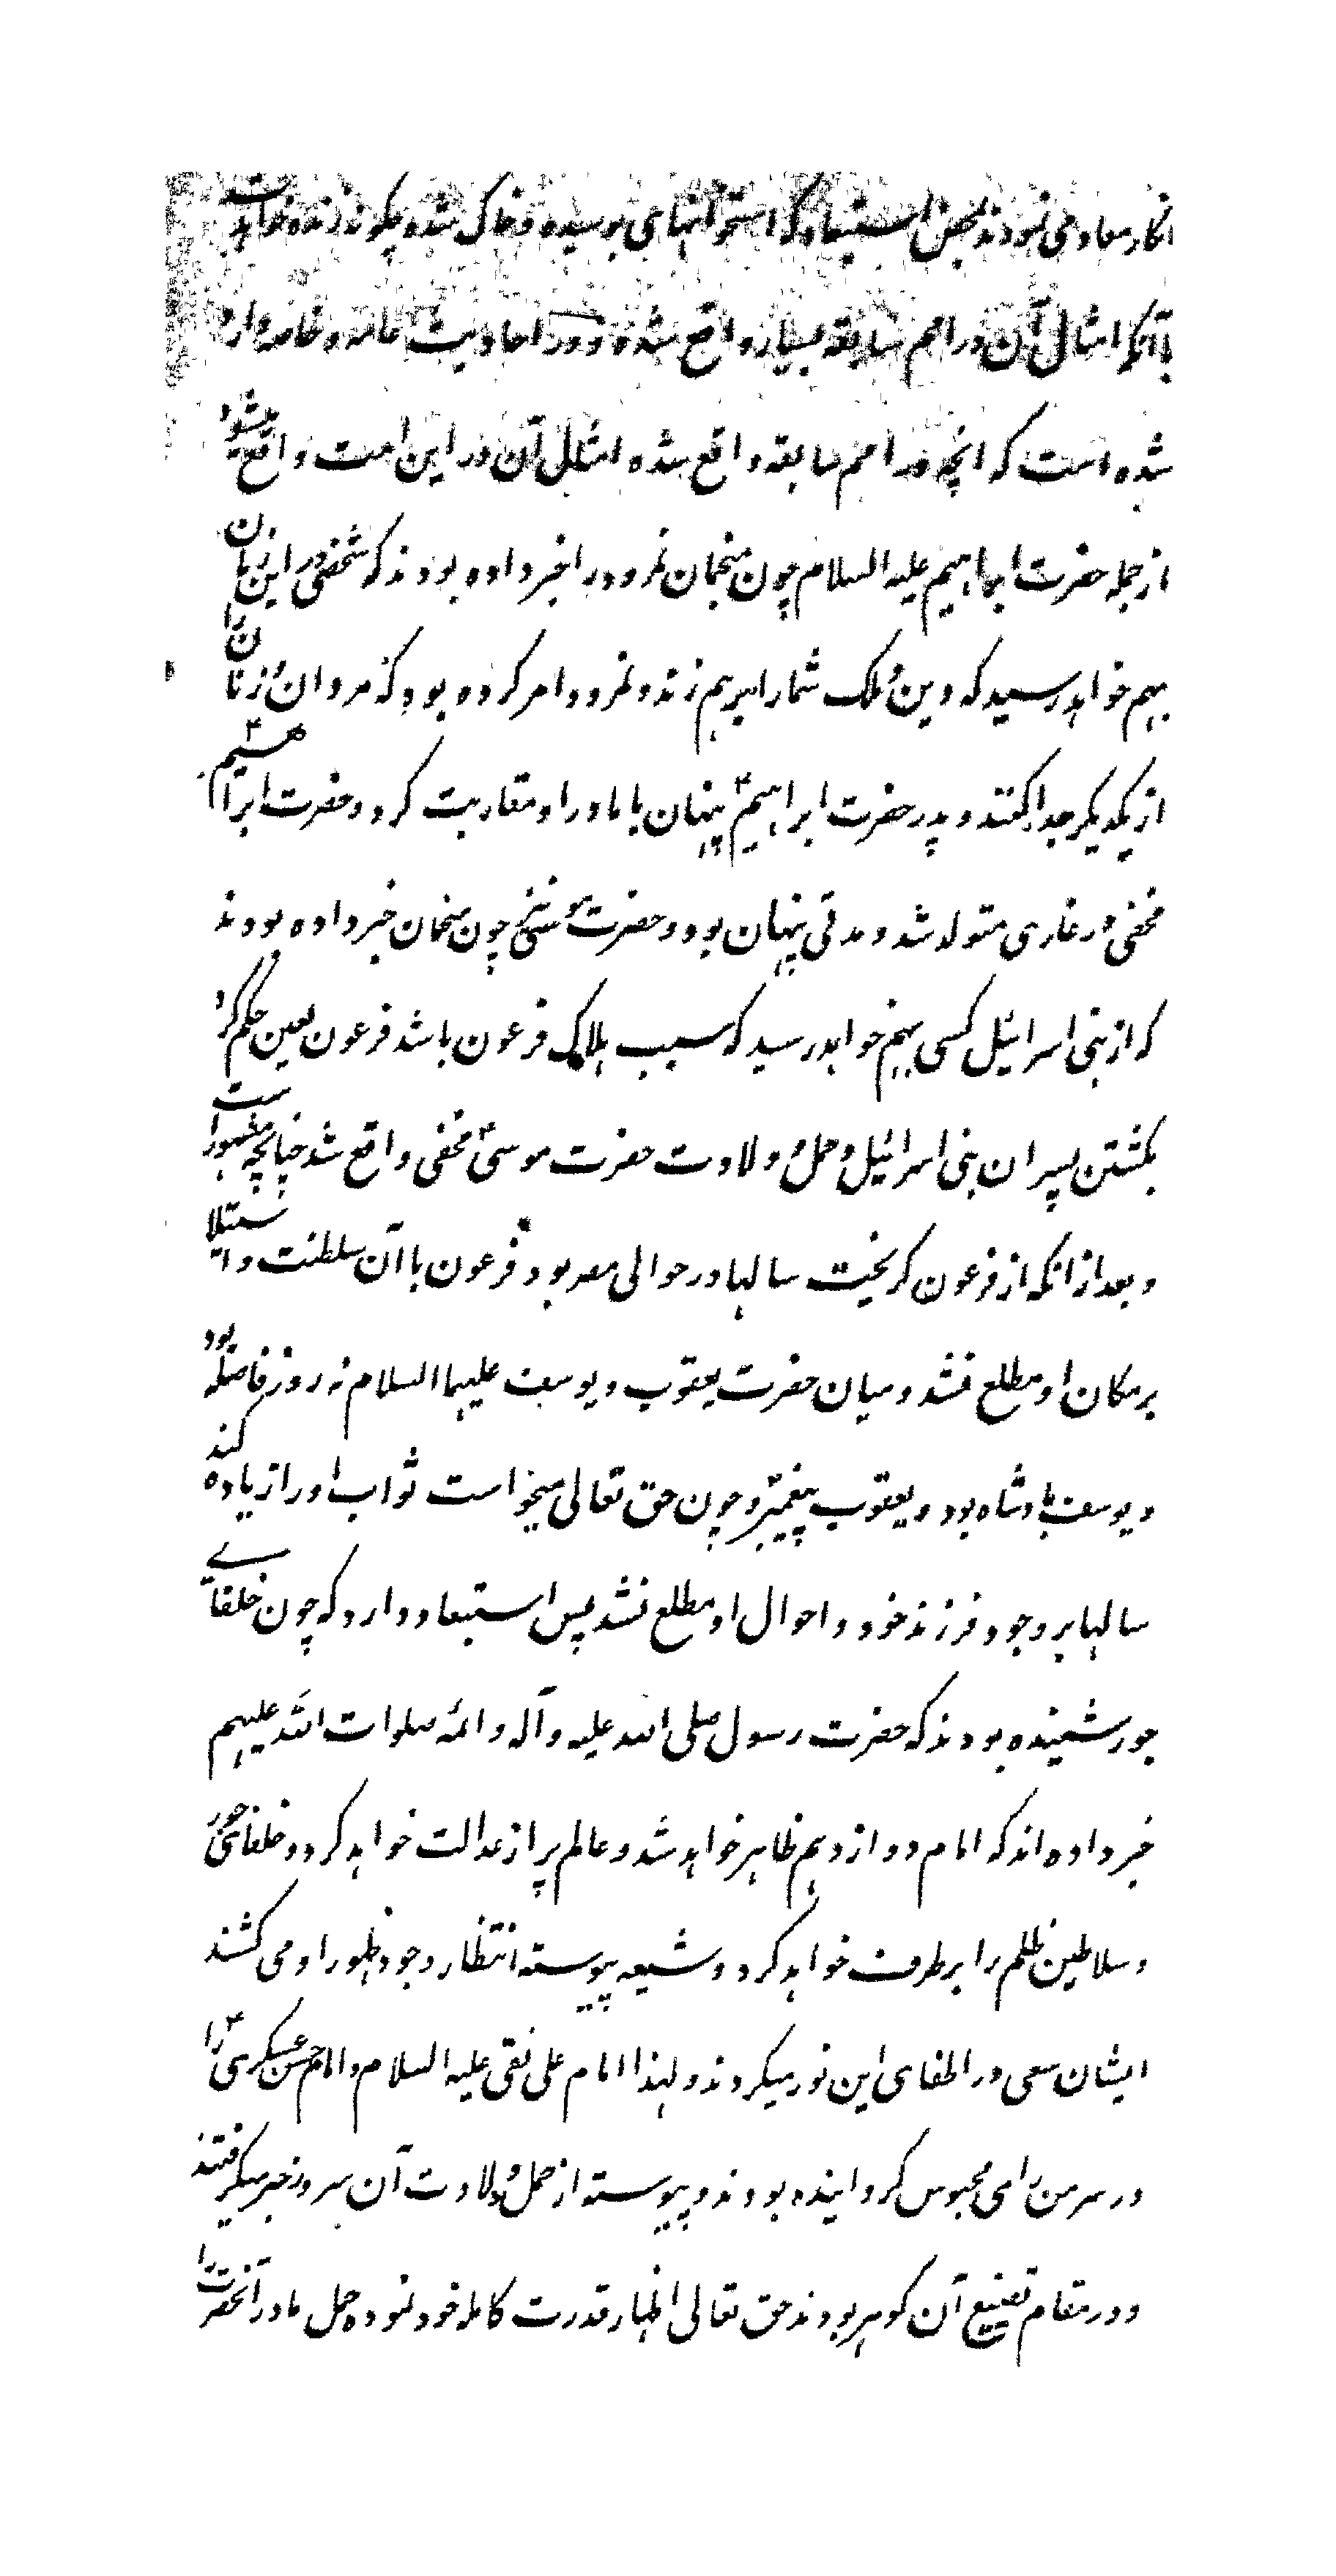 انکار معاد می نمودند بمحض استبعاد که استخوانهای بوسیده و خاک شده چگونه زنده خواهد شد
با آنکه امثال آن در امم سابقه بسیار واقع شده و در احادیث عامه و خاصه وارد
شده است که انچه در امم سابقه واقع شده امثال آن در این امت واقع میشود
از جمله حضرت ابراهیم علیه السلام چون منجمان نمرود را خبر داده بودند که شخصی در این زمان
بهم خواهد رسید که دین و ملک شما را برهم زند و نمرود امر کرده بود که مردان و زنان را
از یکدیگر جدا کنند و پدر حضرت ابراهیم ع پنهان با مادر او مقاربت کرد و حضرت ابراهیم ع
مخفی در غاری متولد شد و مدتی پنهان بود و حضرت موسی چون منجمان خبر داده بودند
که از بنی اسرائیل کسی بهم خواهد رسید که سبب هلاک فرعون باشد فرعون لعین حکم کرد
بکشتن پسران بنی اسرائیل و حمل و ولادت حضرت موسی ع مخفی واقع شد چنانچه مشهور است
و بعد از انکه از فرعون گریخت سالها در حوالی مصر بود و فرعون با آن سلطنت و استیلا
بر مکان او مطلع نشد و میان حضرت یعقوب و یوسف علیهما السلام نه روز فاصله بود
و یوسف پادشاه بود و یعقوب پیغمبر و چون حق تعالی میخواست ثواب او را زیاده کند
سالها بر وجود فرزند خود و احوال او مطلع نشد پس استبعاد دارد که چون خلفای
جور شنیده بودند که حضرت رسول صلی الله علیه و آله و ائمه صلوات الله علیهم
خبر داده اند که امام دوازدهم ظاهر خواهد شد و عالم پر از عدالت خواهد کرد و خلفای جور
و سلاطین ظلم را برطرف خواهد کرد و شیعه پیوسته انتظار وجود و ظهور او می کشند
ایشان سعی در اطفای این نور میکردند و لهذا امام علی نقی علیه السلام و امام حسن عسکری ع را
در سر من رای محبوس گردانیده بودند و پیوسته از حمل و ولادت آن سرور خبر میگرفتند
و در مقام تضییع آن گوهر بودند حق تعالی اظهار قدرت کامله خود نموده حمل مادر آنحضرت را